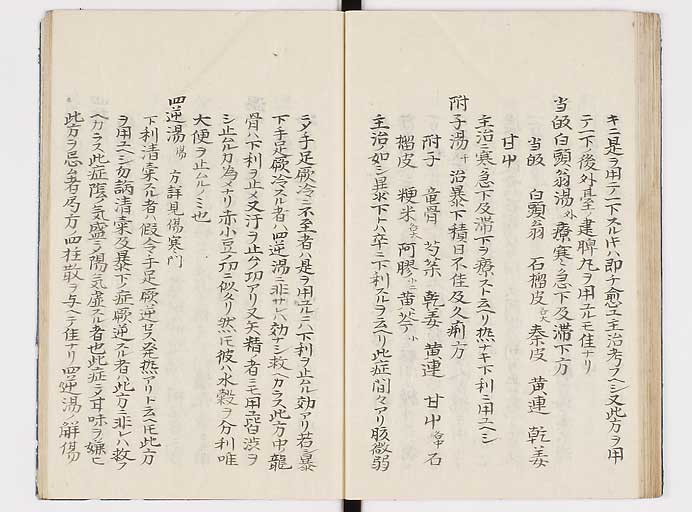 キニ是ヲ用テ一下スルキハ即チ愈ユ主治考フヘシ又此方ヲ用
テ一下ノ後外臺ノ建脾丸ヲ用ユルモ佳ナリ
當皈白頭翁湯外療寒急下及滞下方
當皈 白頭翁 石榴皮 秦皮 黄連 乾姜
甘艸
主治ニ寒急下及滞下ヲ療スト云ヘリ熱ナキ下利ニ用ユヘシ
附子湯千治暴下積日不住及久痢方
附子 竜骨 芍薬 乾姜 黄連 甘艸 石
榴皮 粳米 阿膠 黄芩
主治ノ如シ暴下トハ卒ニ下利スルヲ云ヘリ此症間々アリ胘微弱
ニメ手足厥冷ニ不至者ハ是ヲ用ユルニハ下利ヲ止ムル効アリ若シ暴
下手足厥冷スル者ハ四逆湯ニ非サレハ効ナシ救ヘカラス此方中龍
骨ハ下利ヲ止メ又汗ヲ止ムル功アリ又矢精ノ者ニモ用ユ皆渋ヲ
シ止ムル為メナリ赤小豆ノ功ニ似タリ然氏彼ハ水穀ヲ分利唯
大便ヲ止ムルノミ也
四逆湯傷 方詳見傷寒門
下利清穀スル者ハ假令手足厥逆セス発熱アリト云ヘ氏此方
ヲ用ユヘシ勿論清穀及暴下ノ症厥逆スル者ハ此方ニ非レハ救フ
ヘカラス此症陰ノ気盛ニメ陽ノ気虚スル者也此症ニメ甘味ヲ嫌ヒ
此方ヲ忌ム者局方ノ四柱散ヲ与ヘテ佳ナリ四逆湯ノ解傷